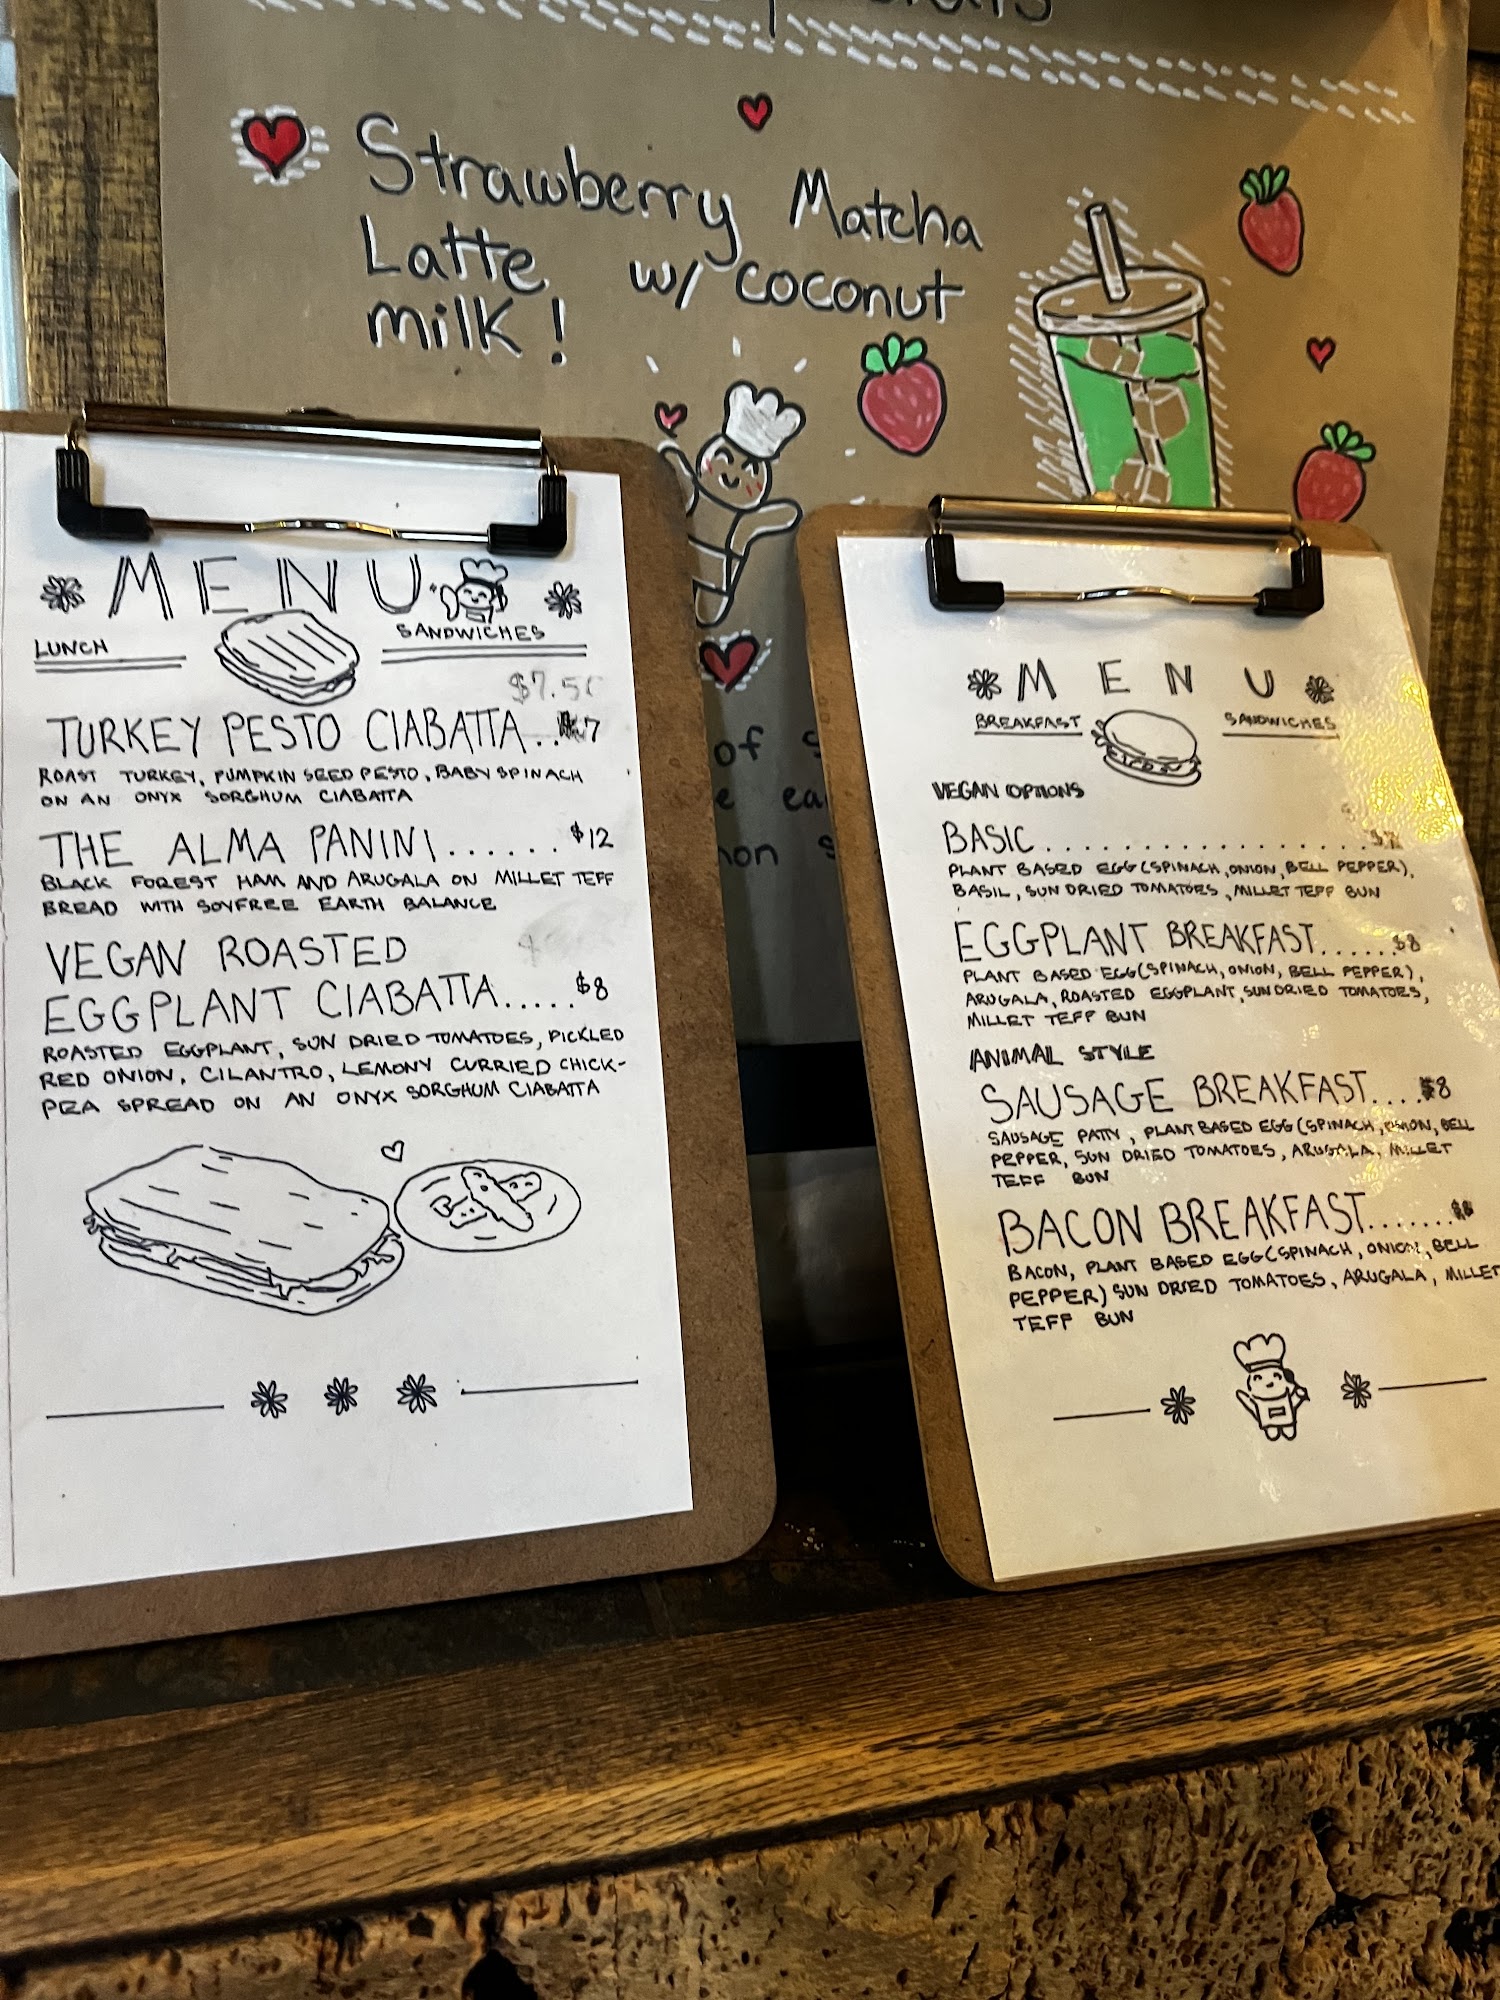 Strawberry Matcha
Latte w/ coconut
milk!
MENU
LUNCH
SANDWICHES
$7.50
TURKEY PESTO CIABATTA..$7
ROAST TURKEY, PUMPKIN SEED PESTO, BABY SPINACH
ON AN ONYX SORGHUM CIABATTA
THE ALMA PANINI......$12
BLACK FOREST HAM AND ARUGALA ON MILLET TEFF
BREAD WITH SOYFREE EARTH BALANCE
VEGAN ROASTED
EGGPLANT CIABATTA.....$8
ROASTED EGGPLANT, SUN DRIED TOMATOES, PICKLED
RED ONION, CILANTRO, LEMONY CURRIED CHICK-
PEA SPREAD ON AN ONYX SORGHUM CIABATTA
of
non
MENU
BREAKFAST
SANDWICHES
VEGAN OPTIONS
BASIC...................
PLANT BASED EGG (SPINACH, ONION, BELL PEPPER),
BASIL, SUN DRIED TOMATOES, MILLET TEFF BUN
EGGPLANT BREAKFAST......$8
PLANT BASED EGG (SPINACH, ONION, BELL PEPPER),
ARUGALA, ROASTED EGGPLANT, SUNDRIED TOMATOES,
MILLET TEFF BUN
ANIMAL STYLE
SAUSAGE BREAKFAST....$8
SAUSAGE PATTY, PLANT BASED EGG (SPINACH, ONION, BELL
PEPPER, SUN DRIED TOMATOES, ARUGALA, MILLET
TEFF BUN
BACON BREAKFAST.......$8
BACON, PLANT BASED EGG (SPINACH, ONION, BELL
PEPPER) SUN DRIED TOMATOES, ARUGALA, MILLET
TEFF BUN